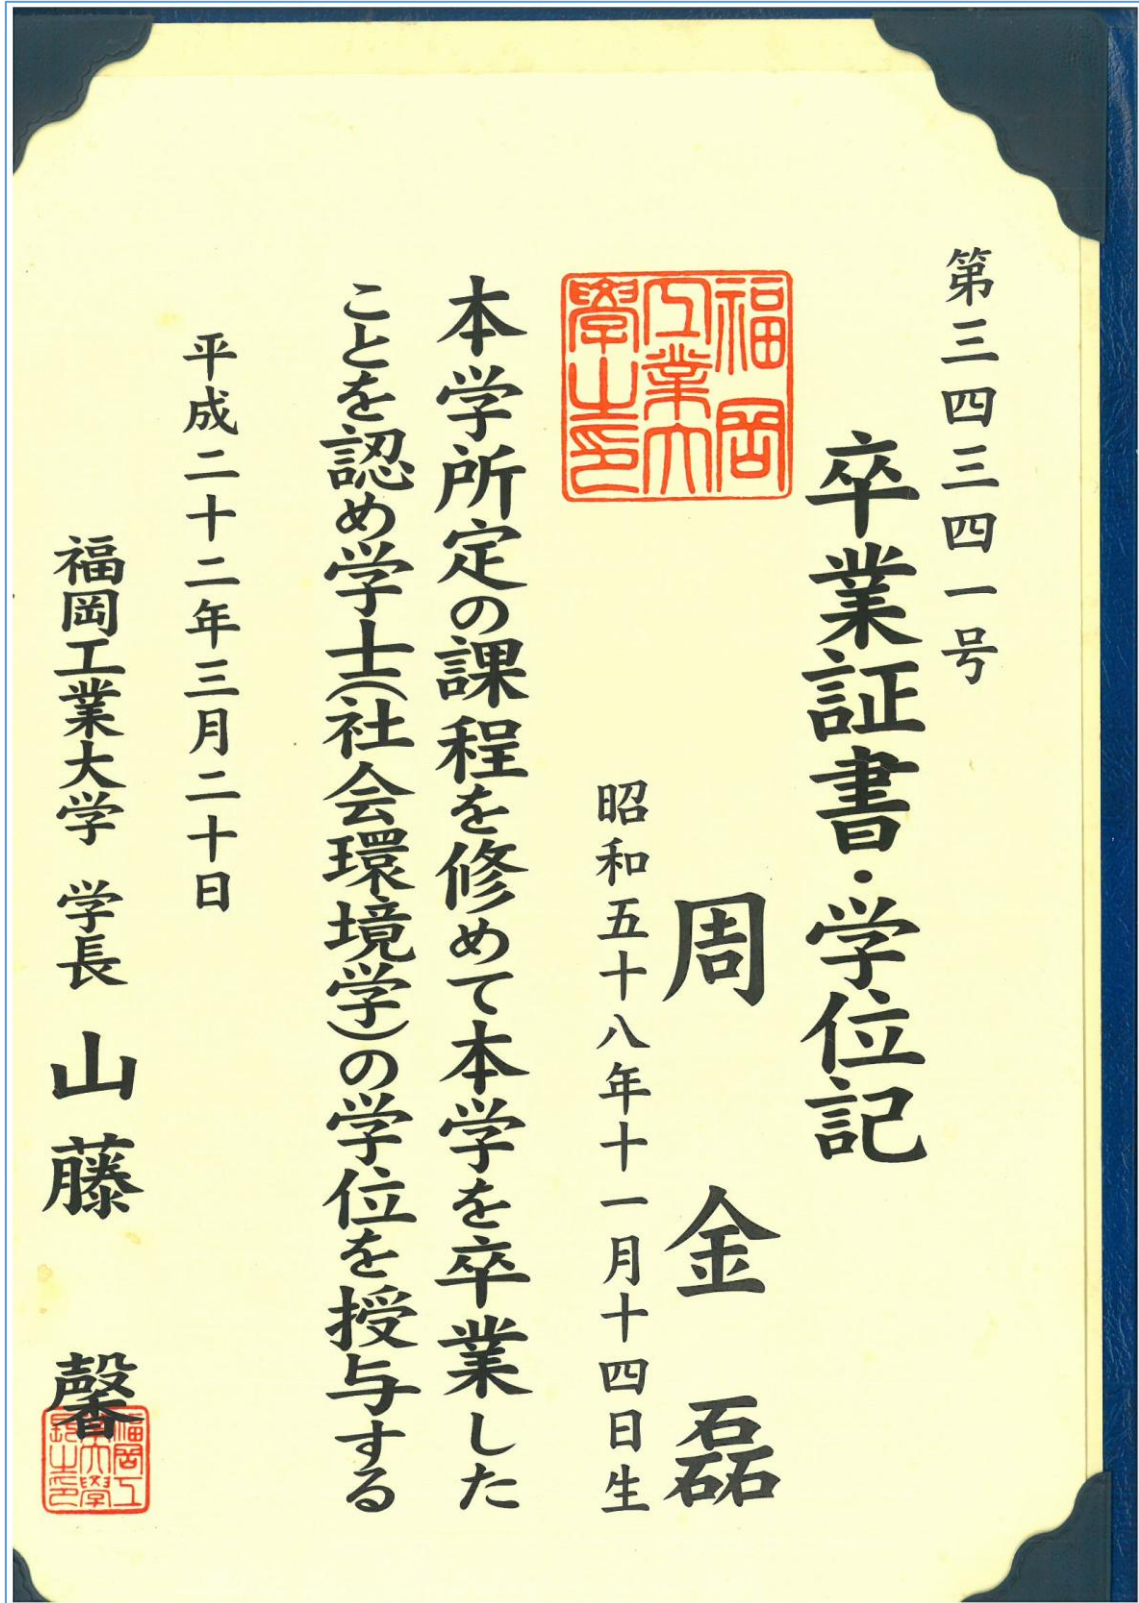 第三四三四一号
卒業証書・学位記
周金磊
昭和五十八年十一月十四日生
福岡
工業大
學之印
本学所定の課程を修めて本学を卒業した
ことを認め学士(社会環境学)の学位を授与する
平成二十二年三月二十日
福岡工業大学 学長 山藤馨
福岡工
業大學
長之印